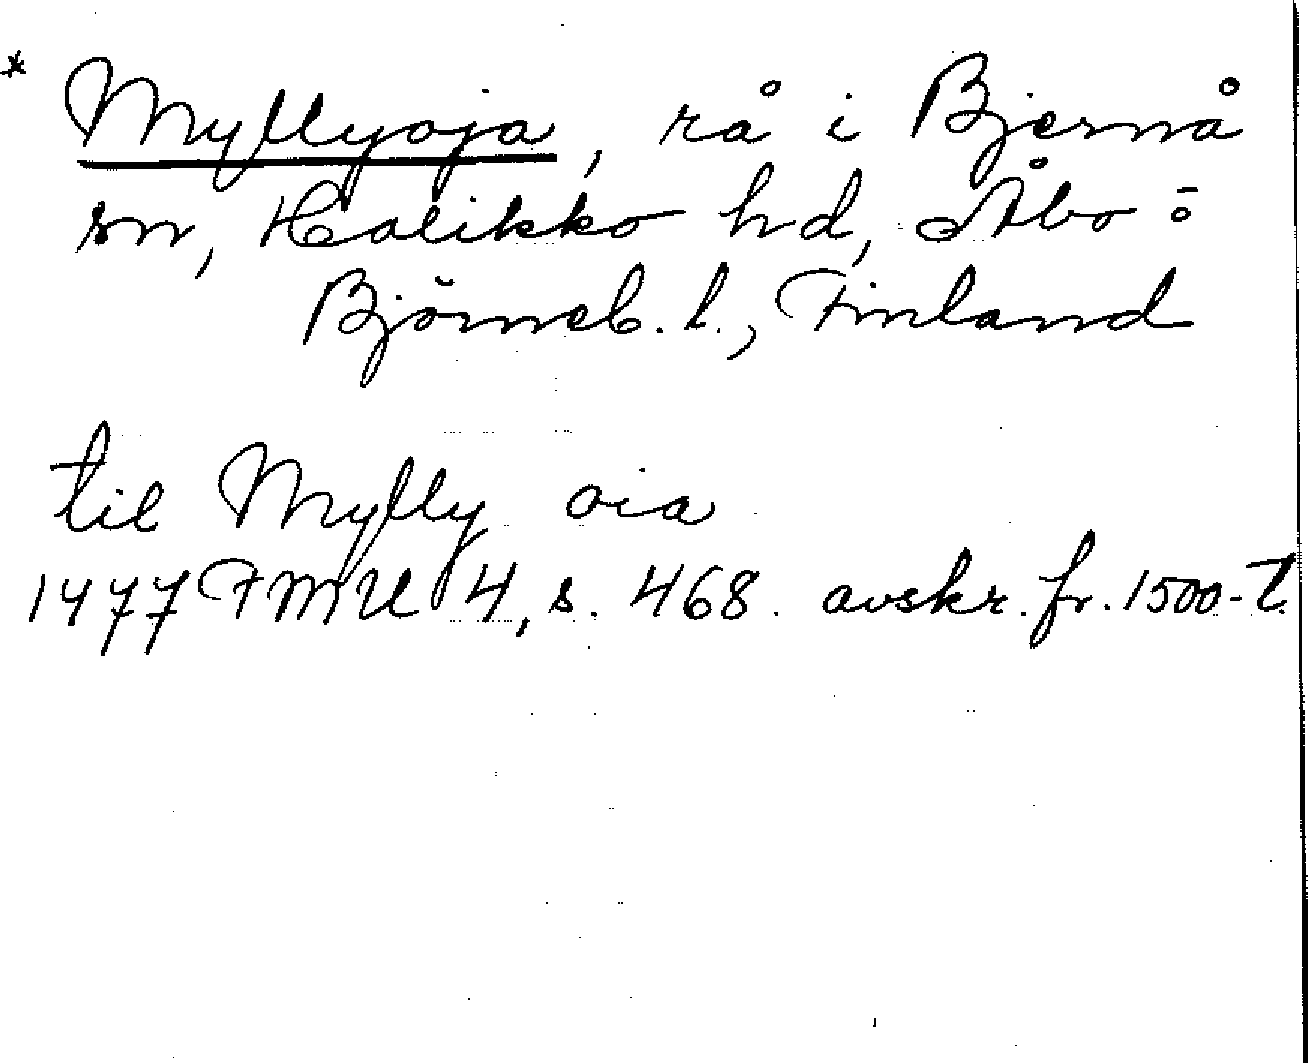 * Myllyoja, rå i Bjernå
sn, Halikko hd, Åbo o
Björneb. l., Finland
til Mylly oia
1477 FMU 4, s. 468. avskr. fr. 1500-t.